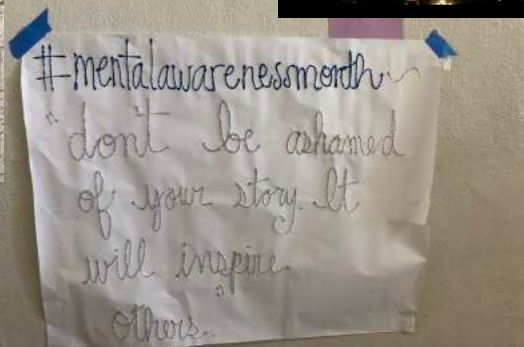 #mentalawarenessmonth
"don't be ashamed
of your story. It
will inspire
others."